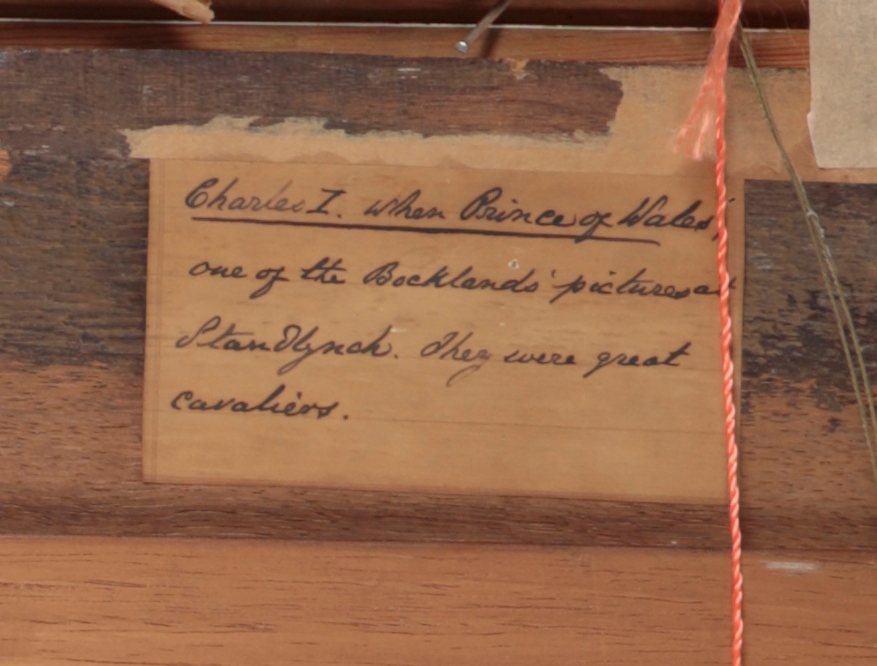 Charles I. when Prince of Wales,
one of the Bocklands' pictures at
Standlynch. They were great
cavaliers.